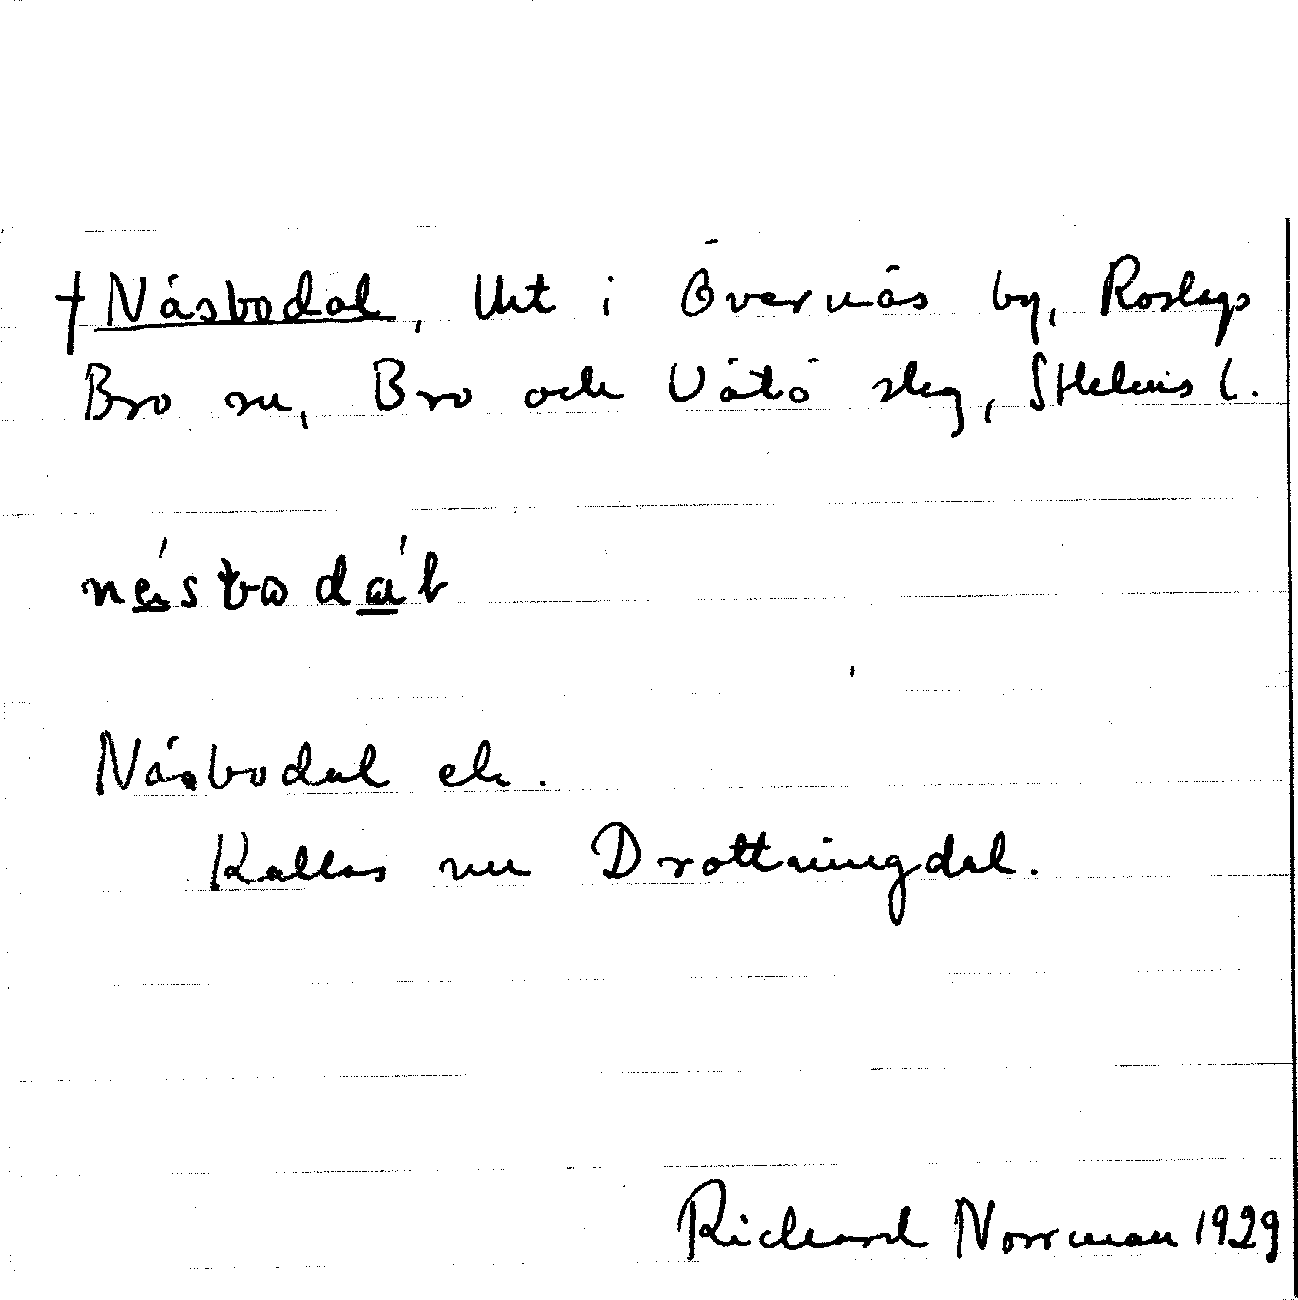 † Näsbodal, Utt i Övernäs by, Roslags
Bro sn, Bro och Vätö slg, SHelens l.
nä́sbodɑ́l
Näsbodal ek.
Kallas nu Drottningdal.
Richard Norrman 1929